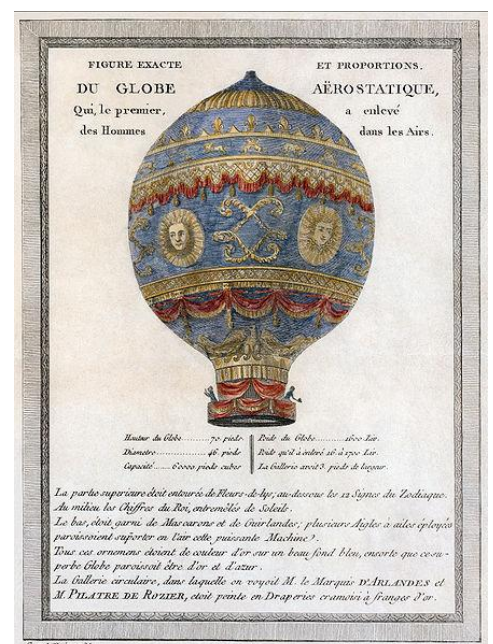 FIGURE EXACTE ET PROPORTIONS.
DU GLOBE AËROSTATIQUE,
Qui, le premier, a enlevé
des Hommes dans les Airs.
Hauteur du Globe.........70 pieds.
Diametre................46. pieds
Capacité......60000 pieds cubes
Poids du Globe..........1600 Liv.
Poids qu'il a enlevé 16 à 1700 Liv.
La Gallerie avoit 3. pieds de largeur.
La partie superieure étoit entourée de Fleurs-de-lys; au-dessous les 12 Signes du Zodiaque.
Au milieu les Chiffres du Roi, entremêlés de Soleils.
Le bas, étoit garni de Mascarons et de Guirlandes; plusieurs Aigles à ailes éployées
paroissoient suporter en l'air cette puissante Machine.
Tous ces ornemens étoient de couleur d'or sur un beau fond bleu, ensorte que ce su-
perbe Globe paroissoit être d'or et d'azur.
La Gallerie circulaire, dans laquelle on voyoit M. le Marquis D'ARLANDES et
M. PILATRE DE ROZIER, etoit peinte en Draperies cramoisi à franges d'or.